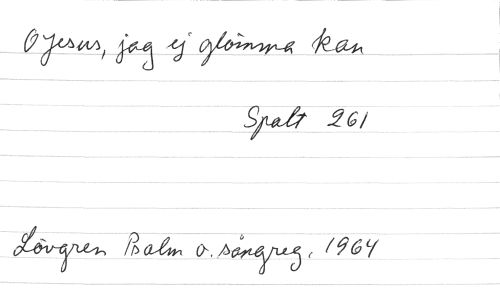 O Jesus, jag ej glömma kan
Spalt 261
Lövgren Psalm o. sångreg. 1964